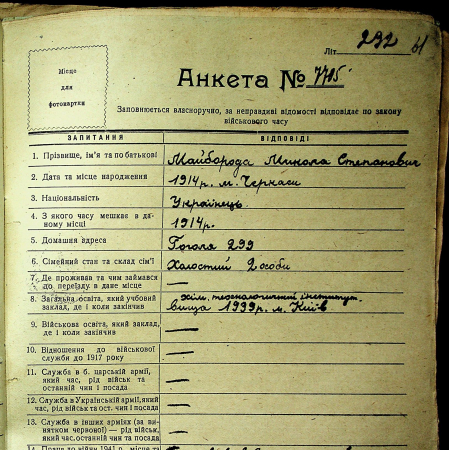 Літ. 292 61
Місце
для
фотокартки
Анкета № 7715
Заповнюється власноручно, за неправдиві відомості відповідає по закону
військового часу
ЗАПИТАННЯ ВІДПОВІДІ
1. Прізвище, ім'я та по батькові Майборода Микола Степанович
2. Дата та місце народження 1914 р. м. Черкаси
3. Національність Українець.
4. З якого часу мешкає в да-
ному місці 1914 р.
5. Домашня адреса Гоголя 299
6. Сімейний стан та склад сім'ї Холостий 2 особи
7. Де проживав та чим займався
до переїзду в дане місце —
8. Загальна освіта, який учбовий хім. технологичний інститут.
заклад, де і коли закінчив вища 1939 р. м. Київ
9. Військова освіта, який заклад,
де і коли закінчив —
10. Відношення до військової
служби до 1917 року —
11. Служба в б. царській армії,
який час, рід військ та
останній чин і посада —
12. Служба в Українській армії, який
час, рід військ та ост. чин і посада —
13. Служба в інших арміях (за ви-
нятком червоної) — рід військ,
який час, останній чин та посада —
14. Праця до війни 1941 р. місце та